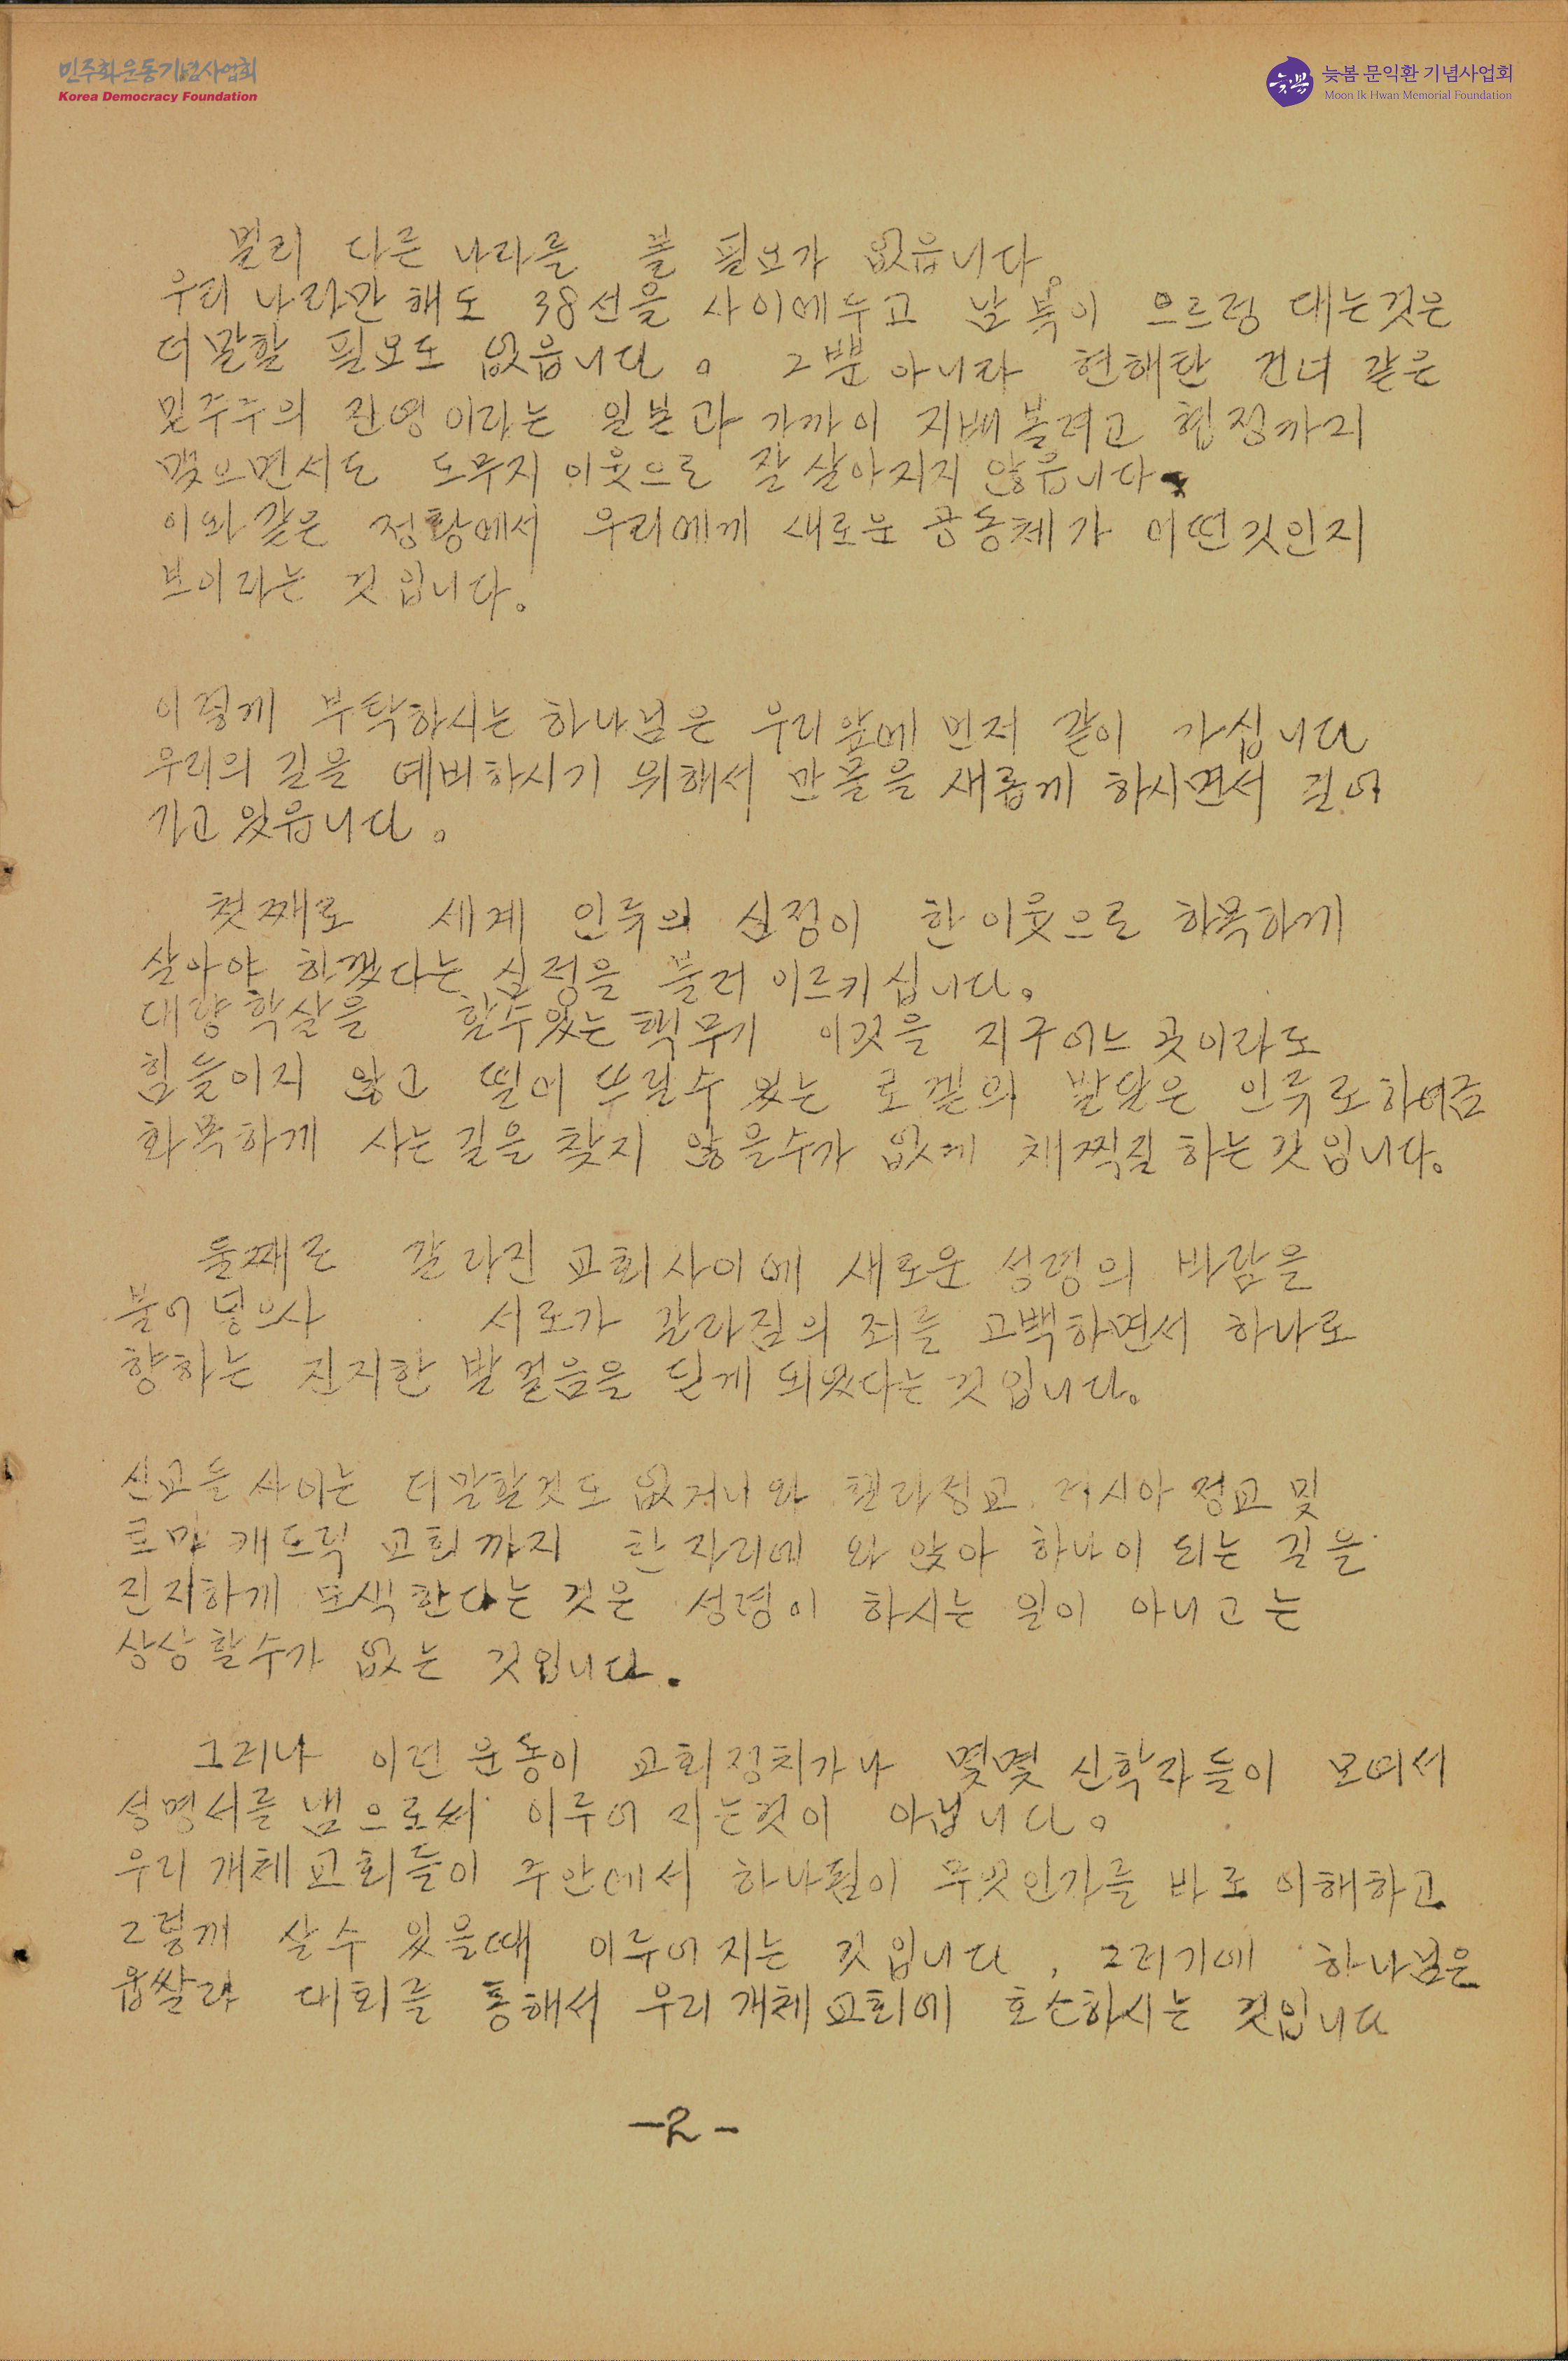 민주화운동기념사업회
Korea Democracy Foundation
늦봄
늦봄 문익환 기념사업회
Moon Ik Hwan Memorial Foundation
멀리 다른 나라를 볼 필요가 없읍니다.
우리 나라만 해도 38선을 사이에두고 남북이 으르렁 대는것은
더말할 필요도 없읍니다. 그뿐 아니라 현해탄 건너 같은
민주주의 진영이라는 일본과 가까이 지내볼려고 협정까지
맺으면서도 도무지 이웃으로 잘 살아지지 않읍니다.
이와 같은 정황에서 우리에게 새로운 공동체가 어떤것인지
보이라는 것입니다.
이렇게 부탁하시는 하나님은 우리앞에 먼저 같이 가십니다
우리의 길을 예비하시기 위해서 만물을 새롭게 하시면서 걸어
가고 있읍니다.
첫째로 세계 인류의 심정이 한 이웃으로 화목하게
살아야 하겠다는 심정을 불러 이르키십니다.
대량학살을 할수있는 핵무기 이것을 지구어느 곳이라도
힘들이지 않고 떨어 뜨릴수 있는 로켙의 발달은 인류로하여금
화목하게 사는길을 찾지 않을수가 없게 채찍질 하는것입니다.
둘째로 갈라진 교회사이에 새로운 성령의 바람을
불어넣으사 서로가 갈라짐의 죄를 고백하면서 하나로
향하는 진지한 발걸음을 딛게 되었다는것입니다.
신교들 사이는 더말할것도 없거니와 헬라정교, 러시아 정교 및
로마 캐도릭 교회까지 한 자리에 와 앉아 하나이 되는 길을
진지하게 모색한다는 것은 성령이 하시는 일이 아니고는
상상할수가 없는 것입니다.
그러나 이런 운동이 교회정치가나 몇몇 신학자들이 모여서
성명서를 냄으로써 이루어 지는것이 아닙니다.
우리 개체교회들이 주안에서 하나됨이 무엇인가를 바로 이해하고
그렇게 살수 있을때 이루어지는 것입니다, 그러기에 하나님은
웁쌀라 대회를 통해서 우리개체교회에 호소하시는 것입니다
-2-